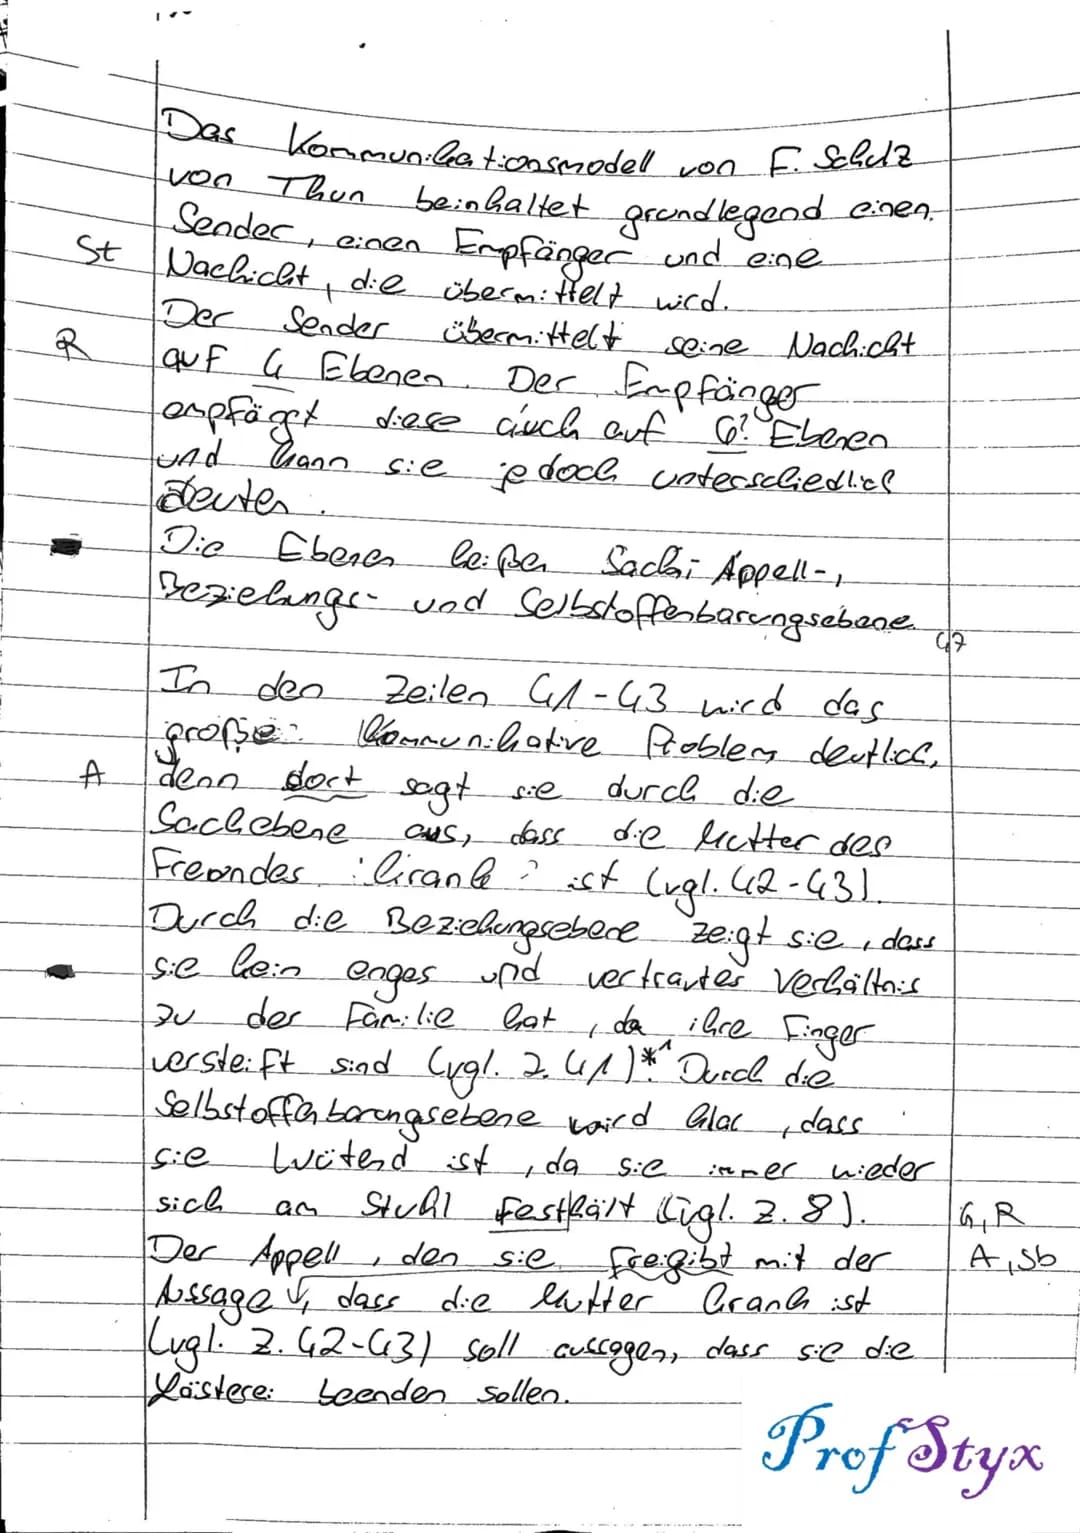 Das Kommunikationsmodell von F. Schulz
von Thun beinhaltet grundlegend einen
Sender, einen Empfänger und eine
St
Nachicht, die übermittelt wird.
Der Sender übermittelt seine Nachicht
R
auf 4 Ebenen. Der Empfänger
empfägt diese auch auf 4 Ebenen
und kann sie jedoch unterschiedlich
deuten.
Die Ebenen heißen Sach-, Appell-,
Beziehungs- und Selbstoffenbarungsebene.
47
In den Zeilen 41-43 wird das
große kommunikative Problem deutlich,
A
denn dort sagt sie durch die
Sachebene aus, dass die Mutter des
Freundes krank ist (vgl. 42-43).
Durch die Beziehungsebene zeigt sie, dass
sie kein enges und vertrautes Verhältnis
zu der Familie hat, da ihre Finger
versteift sind (vgl. Z. 41)*¹. Durch die
Selbstoffenbarungsebene wird klar, dass
sie wütend ist, da sie immer wieder
sich am Stuhl festhält (vgl. Z. 8).
G, R
Der Appell, den sie freigibt mit der
A, Sb
Aussage √, dass die Mutter krank ist
(vgl. Z. 42-43) soll aussagen, dass sie die
Lästerei beenden sollen.
Prof Styx